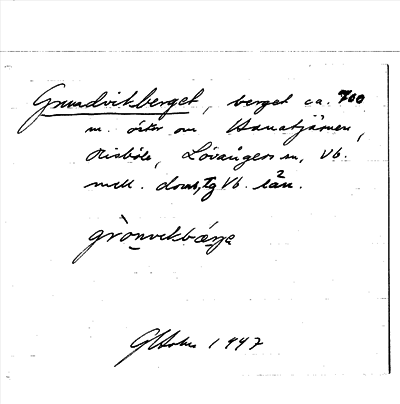 Grundvikberget, berget ca. 700
m. öster om Hanatjärnen,
Risböle, Lövångers sn, Vb.
mell. doms, Vb. län.
grònvikbærje
GHolm 1947